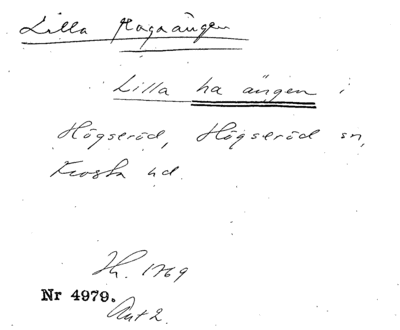 Lilla Hagaängen
Lilla ha ängen i
Högseröd, Högseröd sn,
Frosta hd.
Sk. 1769
Nr 4979.
Akt 2.